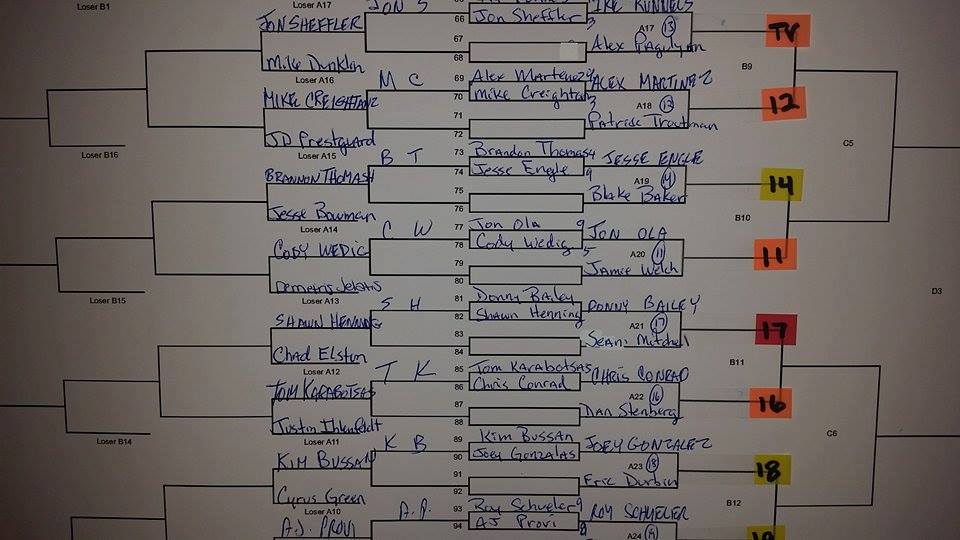 Loser B1
Loser A17
JON S
66
Jon Sheffler
3
MIKE RUNNELS
JON SHEFFLER
67
A17
13
TV
68
Alex Pagulyan
Mike Dunklin
B9
Loser A16
M C
69
Alex Martinez
ALEX MARTINEZ
MIKE CREIGHTON
70
Mike Creighton
3
A18
12
12
71
Patrick Troutman
72
JD Prestguard
C5
Loser B16
Loser A15
B T
73
Brandon Thomas
4
JESSE ENGLE
BRANNON THOMAS
74
Jesse Engle
9
A19
14
75
Blake Baker
76
Jesse Bowman
B10
Loser A14
C W
77
Jon Ola
9
JON OLA
CODY WEDIG
78
Cody Wedig
5
A20
11
11
79
Jamie Welch
80
D3
Loser B15
Loser A13
S H
81
Donny Bailey
DONNY BAILEY
SHAWN HENNING
82
Shawn Henning
A21
17
17
83
Sean Mitchell
84
Chad Elston
B11
Loser A12
T K
85
Tom Karabotsas
CHRIS CONRAD
TOM KARABOTSAS
86
Chris Conrad
A22
16
16
87
Dan Stenberg
88
Justin Ihlenfeldt
C6
Loser B14
Loser A11
K B
89
Kim Bussan
JOEY GONZALEZ
KIM BUSSAN
90
Joey Gonzalas
A23
18
18
91
Eric Durbin
92
Cyrus Green
B12
Loser A10
A.P.
93
Roy Schueler
9
ROY SCHUELER
A.J. PROVI
94
AJ Provi
8
A24
19